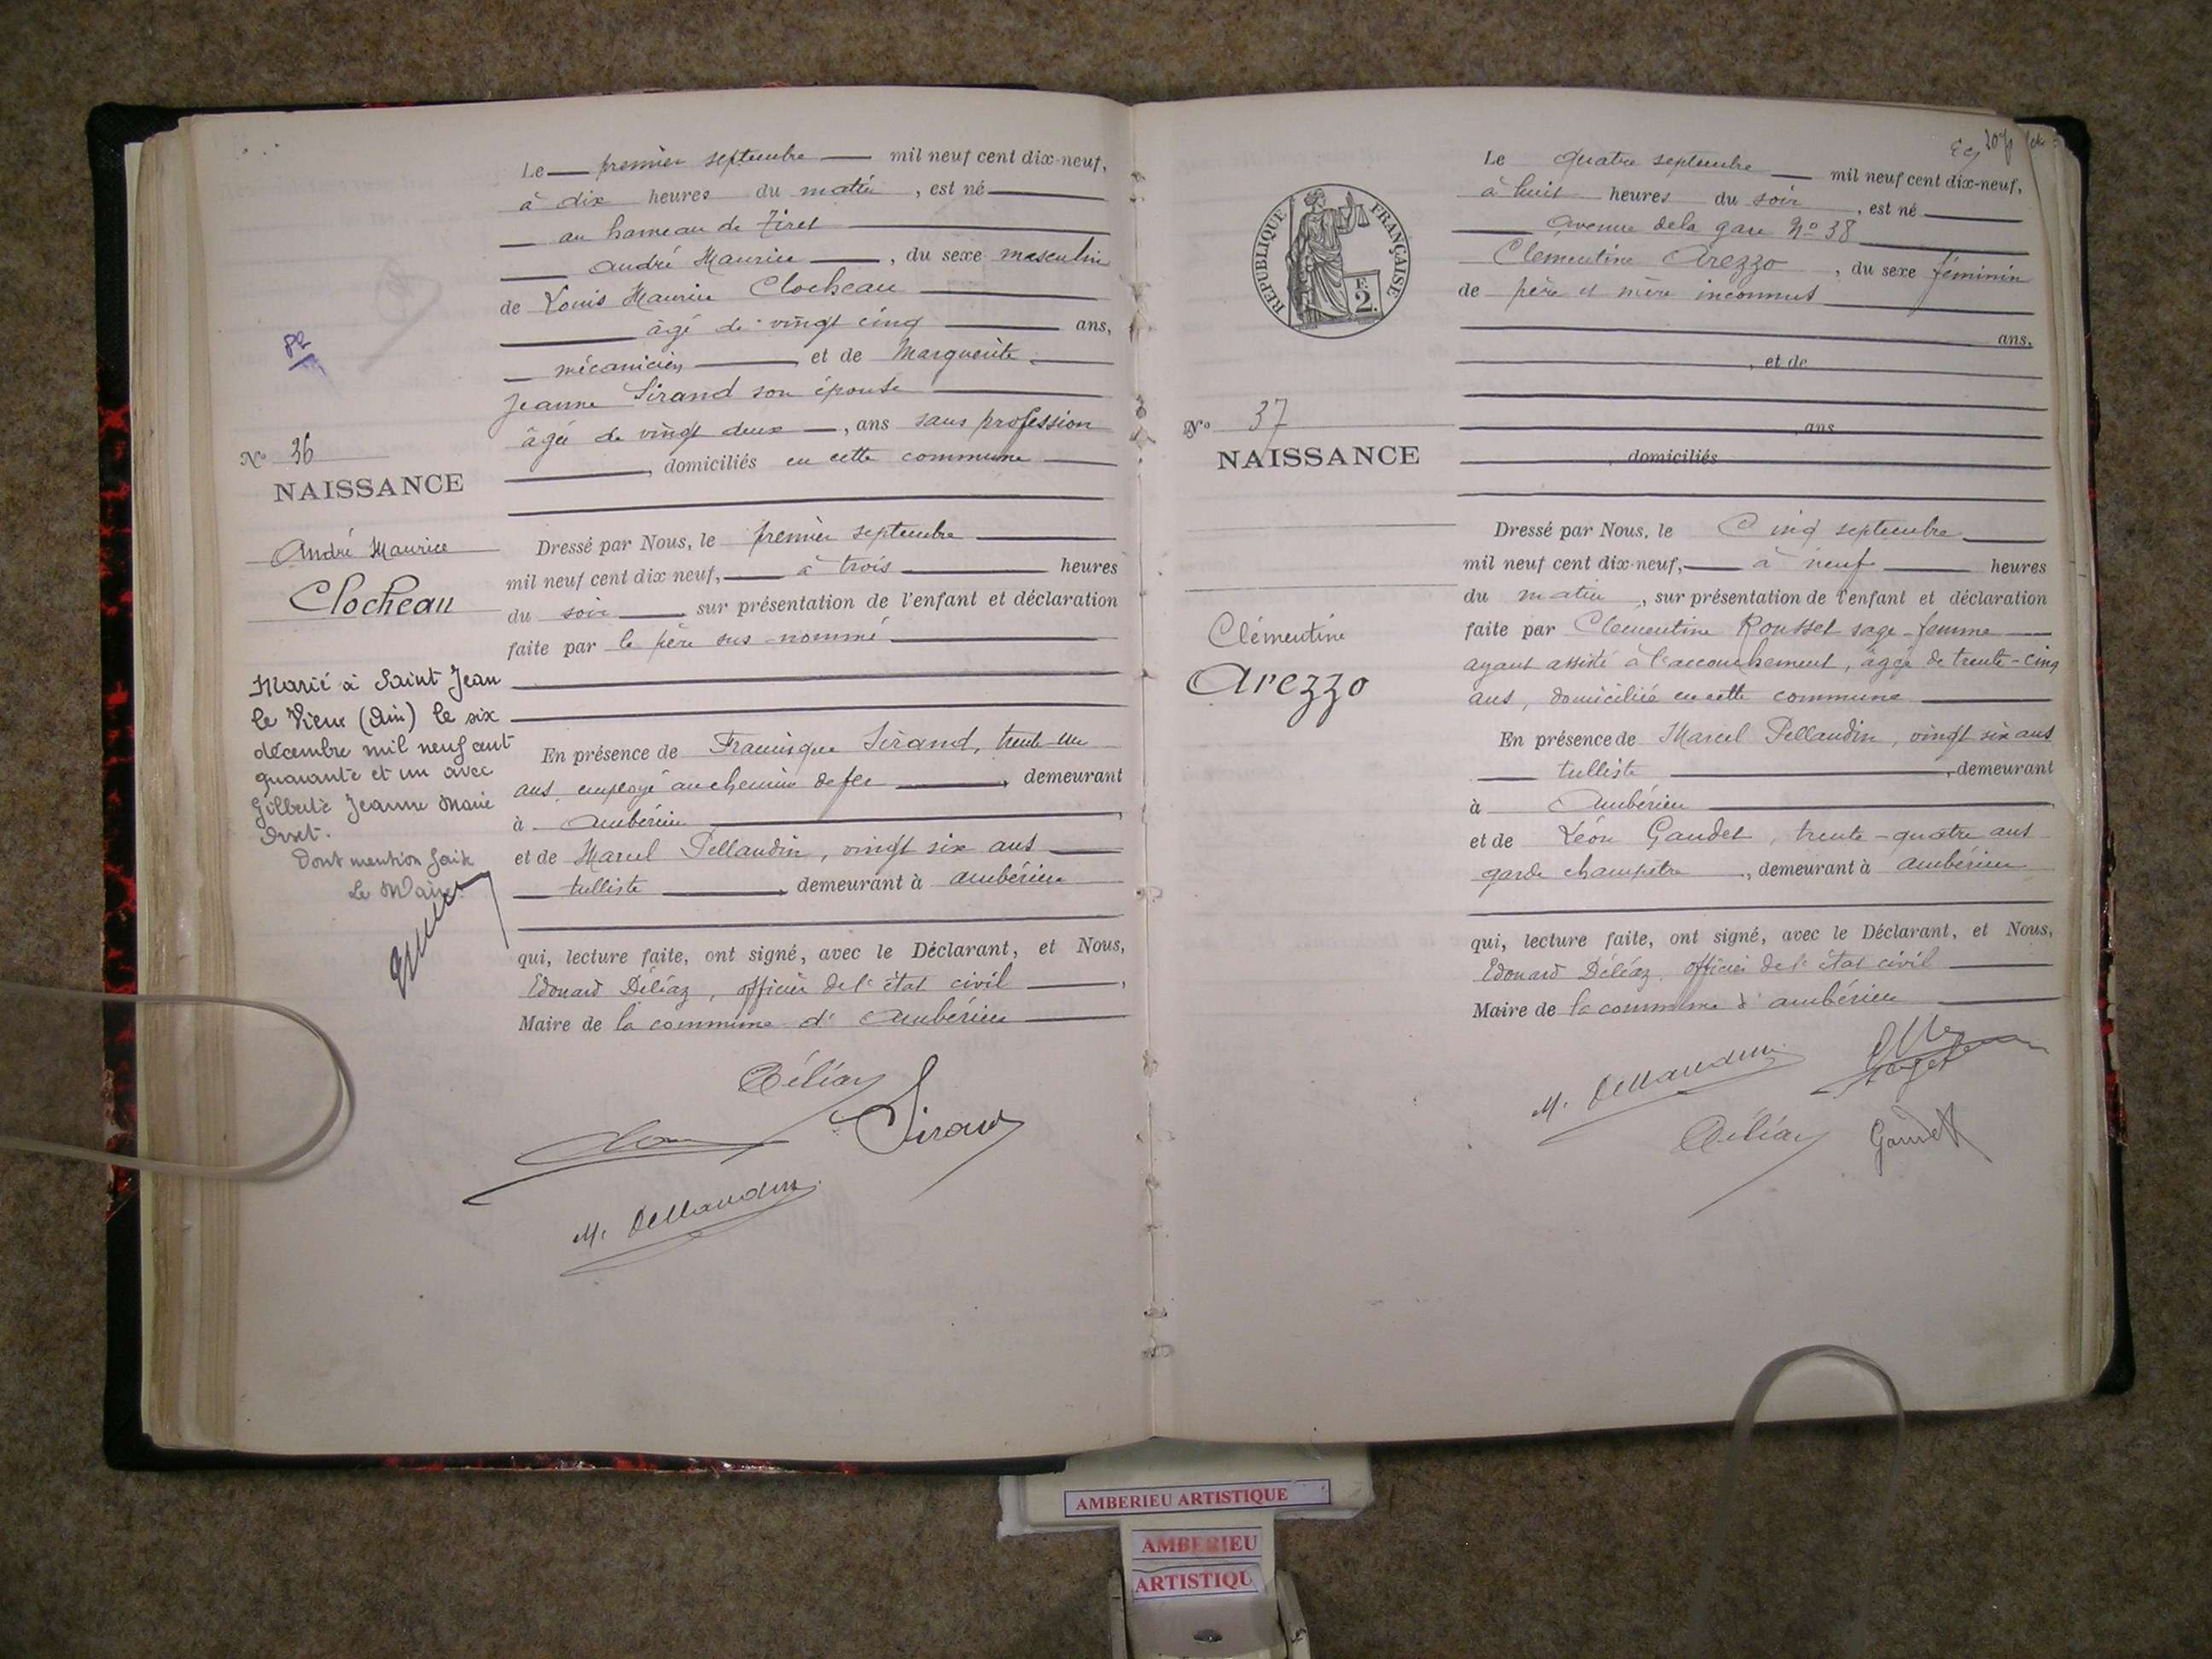 Le premier septembre mil neuf cent dix-neuf,
à dix heures du matin, est né
au hameau de Tiret
André Maurice, du sexe masculin
de Louis Maurice Clocheau
âgé de vingt cinq ans,
mécanicien et de Marguerite
Jeanne Sirand son épouse
âgée de vingt deux, ans sans profession
, domiciliés en cette commune
No 36
NAISSANCE
André Maurice
Clocheau
Dressé par Nous, le premier septembre
mil neuf cent dix neuf, à trois heures
du soir sur présentation de l'enfant et déclaration
faite par le père sus-nommé
Marié à Saint Jean
le Vieux (Ain) le six
décembre mil neuf cent
quarante et un avec
Gilberte Jeanne Marie
Dont mention faite
Le Maire
En présence de Francisque Sirand, trente un
ans employé au chemin de fer, demeurant
à Ambérieu
et de Marcel Pellaudin, vingt six ans
tulliste, demeurant à Ambérieu
qui, lecture faite, ont signé, avec le Déclarant, et Nous,
Edouard Déléaz, officier de l'état civil,
Maire de la commune d'Ambérieu
Déléaz
Sirand
M. Pellaudin
RÉPUBLIQUE FRANÇAISE
F.
2.
Le quatre septembre mil neuf cent dix-neuf,
à huit heures du soir, est né
Avenue de la gare No 38
Clementine Arezzo, du sexe féminin
de père et mère inconnus
ans,
, et de
ans
, domiciliés
No 37
NAISSANCE
Clémentine
Arezzo
Dressé par Nous, le Cinq septembre
mil neuf cent dix-neuf, à neuf heures
du matin, sur présentation de l'enfant et déclaration
faite par Clementine Rousset sage-femme
ayant assisté à l'accouchement, âgée de trente-cinq
ans, domiciliée en cette commune
En présence de Marcel Pellaudin, vingt six ans
tulliste, demeurant
à Ambérieu
et de Léon Gaudet, trente-quatre ans
garde champêtre, demeurant à Ambérieu
qui, lecture faite, ont signé, avec le Déclarant, et Nous,
Edouard Déléaz, officier de l'état civil
Maire de la commune d'Ambérieu
M. Pellaudin
Déléaz Gaudet
AMBERIEU ARTISTIQUE
AMBERIEU
ARTISTIQU